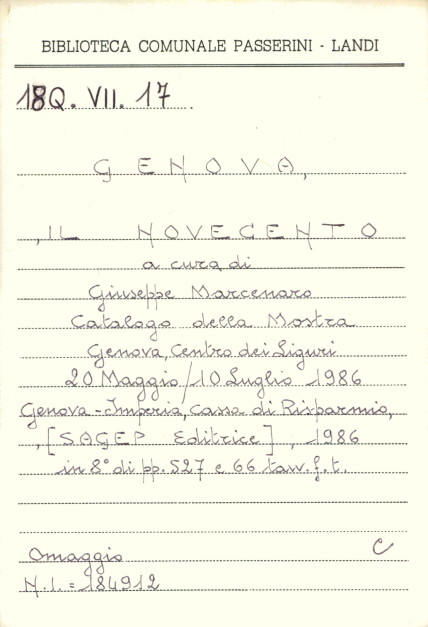 BIBLIOTECA COMUNALE PASSERINI - LANDI
18Q. VII. 17
GENOVA,
, IL NOVECENTO
a cura di
Giuseppe Marcenaro
Catalogo della Mostra
Genova, Centro dei Liguri
20 Maggio/10 Luglio 1986
Genova - Imperia, Cassa di Risparmio,
, [SAGEP Editrice], 1986
in 8° di pp. 527 e 66 tavv. f. t.
Omaggio C
N. I. = 184912